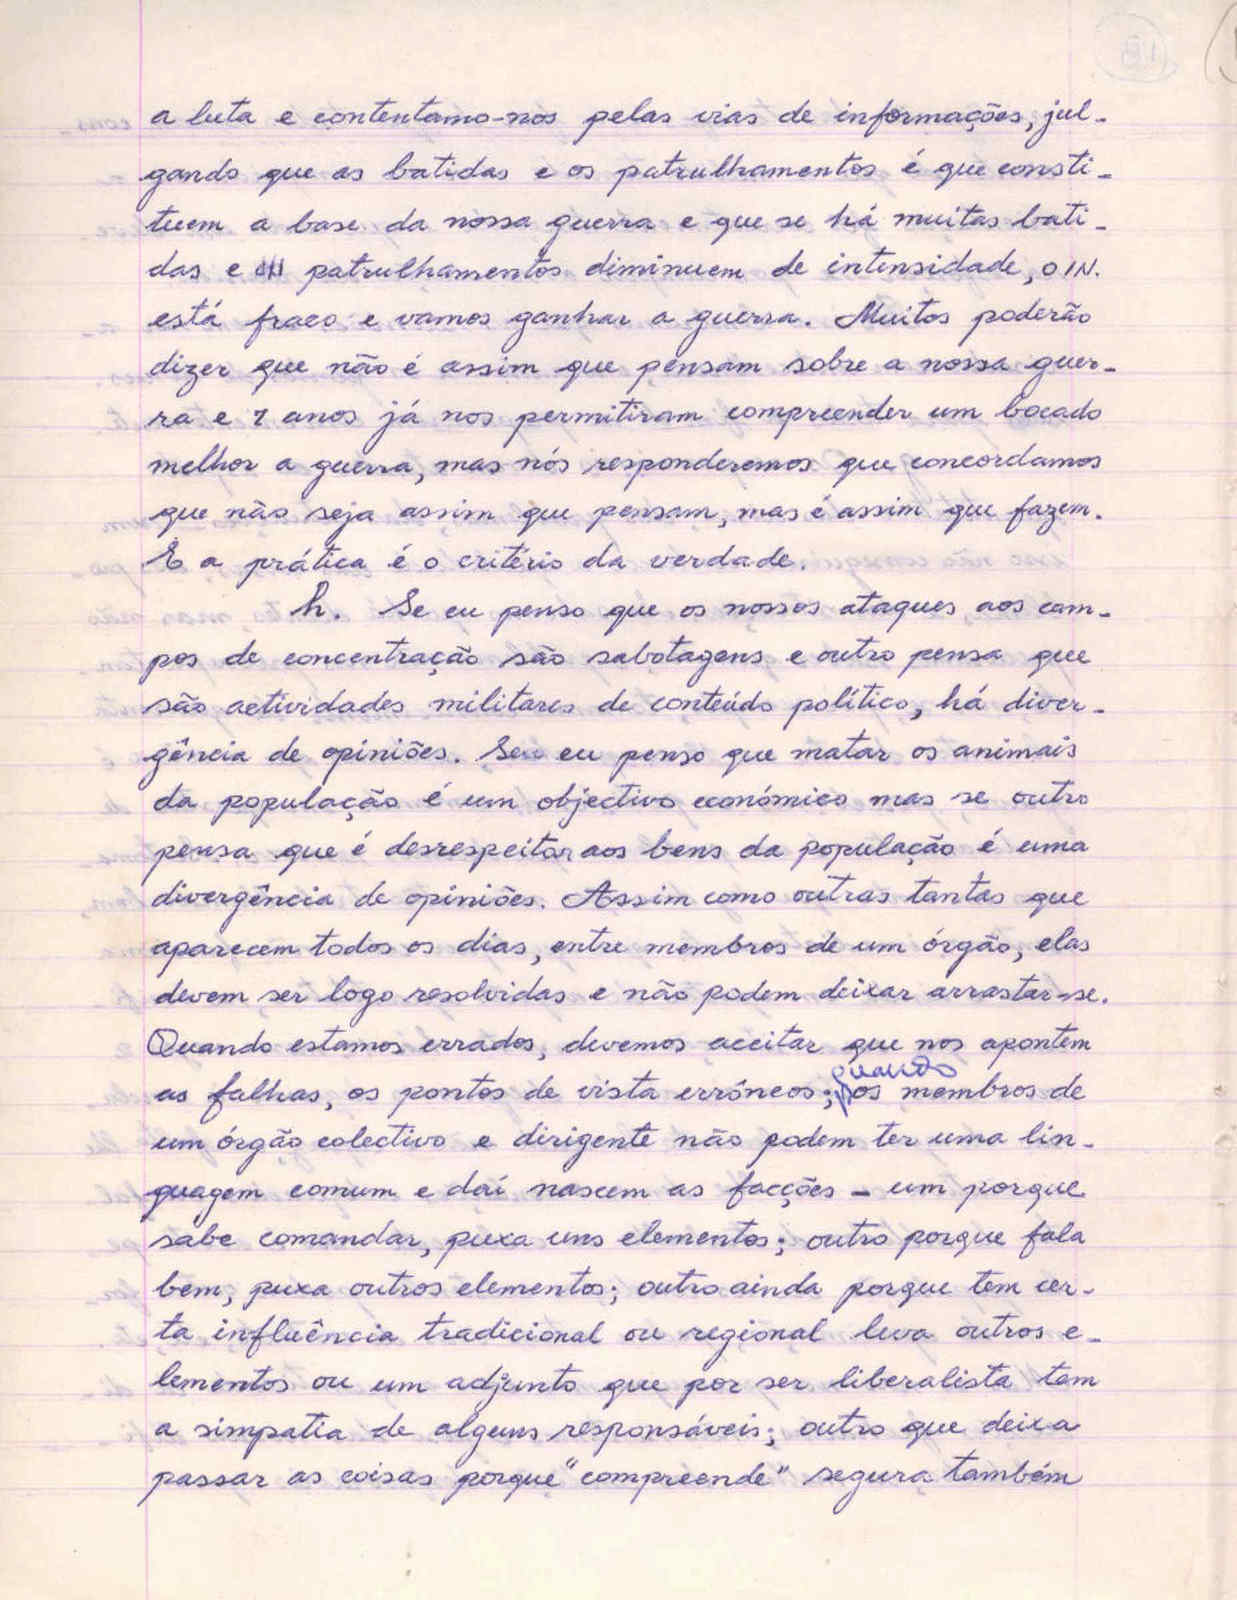 a luta e contentamo-nos pelas vias de informações, jul-
gando que as batidas e os patrulhamentos é que consti-
tuem a base da nossa guerra e que se há muitas bati-
das e patrulhamentos diminuem de intensidade, o IN.
está fraco e vamos ganhar a guerra. Muitos poderão
dizer que não é assim que pensam sobre a nossa guer-
ra e 7 anos já nos permitiram compreender um bocado
melhor a guerra, mas nós responderemos que concordamos
que não seja assim que pensam, mas é assim que fazem.
E a prática é o critério da verdade.
h. Se eu penso que os nossos ataques aos cam-
pos de concentração são sabotagens e outro pensa que
são actividades militares de conteúdo político, há diver-
gência de opiniões. Se eu penso que matar os animais
da população é um objectivo económico mas se outro
pensa que é desrespeitar aos bens da população é uma
divergência de opiniões. Assim como outras tantas que
aparecem todos os dias, entre membros de um órgão, elas
devem ser logo resolvidas e não podem deixar arrastar-se.
Quando estamos errados, devemos aceitar que nos apontem
as falhas, os pontos de vista erróneos; quando os membros de
um órgão colectivo e dirigente não podem ter uma lin-
guagem comum e daí nascem as facções - um porque
sabe comandar, puxa uns elementos; outro porque fala
bem, puxa outros elementos; outro ainda porque tem cer-
ta influência tradicional ou regional leva outros e-
lementos ou um adjunto que por ser liberalista tem
a simpatia de alguns responsáveis; outro que deixa
passar as coisas porque "compreende" segura também